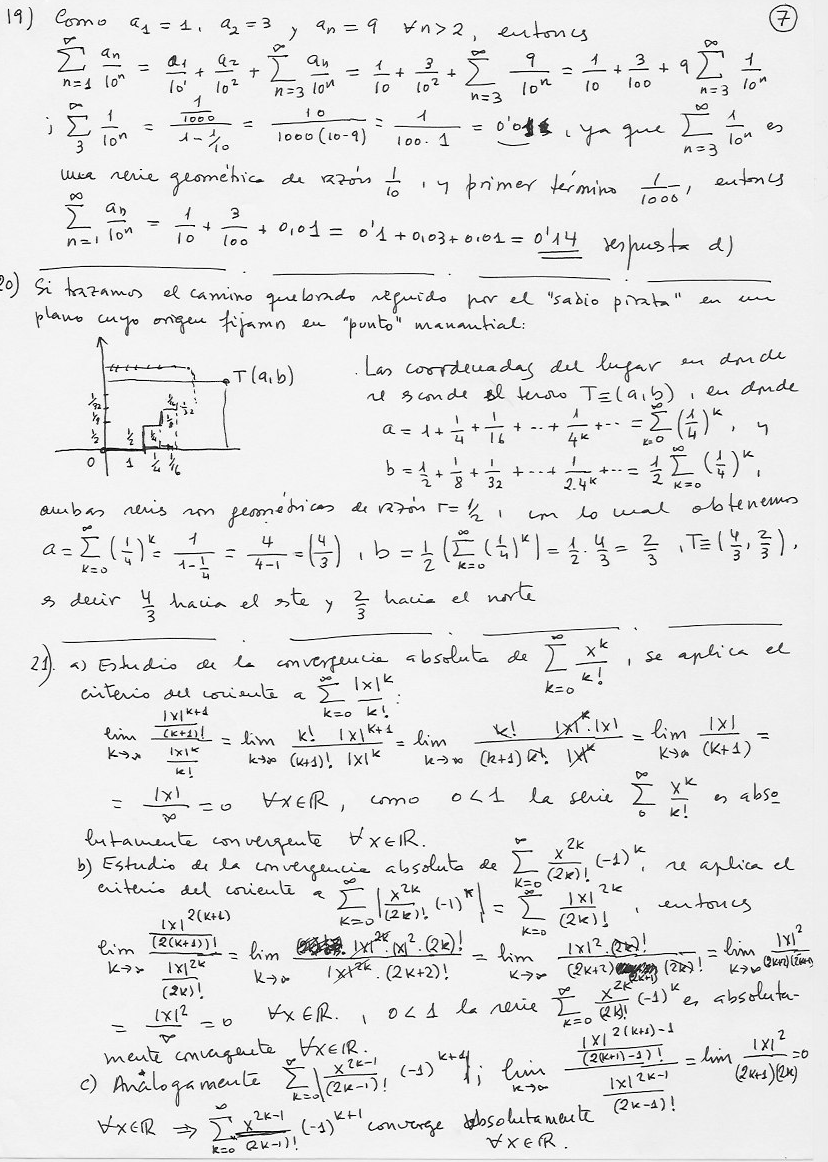 ⑦
19) Como a₁ = 1, a₂ = 3 y aₙ = 9 ∀n>2, entonces
∑_{n=1}^{∞} aₙ/10ⁿ = a₁/10¹ + a₂/10² + ∑_{n=3}^{∞} aₙ/10ⁿ = 1/10 + 3/10² + ∑_{n=3}^{∞} 9/10ⁿ = 1/10 + 3/100 + 9 ∑_{n=3}^{∞} 1/10ⁿ
; ∑_{3}^{∞} 1/10ⁿ = (1/1000)/(1 - 1/10) = 10/(1000(10-9)) = 1/(100·1) = 0'01, ya que ∑_{n=3}^{∞} 1/10ⁿ es
una serie geométrica de razón 1/10, y primer término 1/1000, entonces
∑_{n=1}^{∞} aₙ/10ⁿ = 1/10 + 3/100 + 0,01 = 0'1 + 0,03 + 0,01 = 0'14 respuesta d)
20) Si trazamos el camino quebrado seguido por el "sabio pirata" en un
plano cuyo origen fijamos en "punto" manantial:
T(a,b)
1/32
1/8
1/2
1/2
1/4
1/8
1/16
1/32
0 1 1/4 1/16
Las coordenadas del lugar en donde
se esconde el tesoro T≡(a,b), en donde
a = 1 + 1/4 + 1/16 + ... + 1/4ᵏ + ... = ∑_{k=0}^{∞} (1/4)ᵏ, y
b = 1/2 + 1/8 + 1/32 + ... + 1/(2·4ᵏ) + ... = 1/2 ∑_{k=0}^{∞} (1/4)ᵏ,
ambas series son geométricas de razón r = 1/2, con lo cual obtenemos
a = ∑_{k=0}^{∞} (1/4)ᵏ = 1/(1 - 1/4) = 4/(4-1) = (4/3), b = 1/2 (∑_{k=0}^{∞} (1/4)ᵏ) = 1/2 · 4/3 = 2/3, T≡(4/3, 2/3),
es decir 4/3 hacia el este y 2/3 hacia el norte
21). a) Estudio de la convergencia absoluta de ∑_{k=0}^{∞} xᵏ/k!, se aplica el
criterio del cociente a ∑_{k=0}^{∞} |x|ᵏ/k! :
lim_{k→∞} (|x|ᵏ⁺¹/(k+1)!)/(|x|ᵏ/k!) = lim_{k→∞} k! |x|ᵏ⁺¹/((k+1)! |x|ᵏ) = lim_{k→∞} k! |x|ᵏ·|x|/((k+1) k! |x|ᵏ) = lim_{k→∞} |x|/(k+1) =
= |x|/∞ = 0 ∀x∈ℝ, como 0<1 la serie ∑_{0}^{∞} xᵏ/k! es abso
lutamente convergente ∀x∈ℝ.
b) Estudio de la convergencia absoluta de ∑_{k=0}^{∞} x²ᵏ/(2k)! (-1)ᵏ, se aplica el
criterio del cociente a ∑_{k=0}^{∞} |x²ᵏ/(2k)! (-1)ᵏ| = ∑_{k=0}^{∞} |x|²ᵏ/(2k)!, entonces
lim_{k→∞} (|x|²⁽ᵏ⁺¹⁾/(2(k+1))!)/(|x|²ᵏ/(2k)!) = lim_{k→∞} |x|²ᵏ·|x|²·(2k)!/(|x|²ᵏ·(2k+2)!) = lim_{k→∞} |x|²·(2k)!/((2k+2)(2k+1)(2k)!) = lim_{k→∞} |x|²/((2k+2)(2k+1))
= |x|²/∞ = 0 ∀x∈ℝ., 0<1 la serie ∑_{k=0}^{∞} x²ᵏ/(2k)! (-1)ᵏ es absoluta-
mente convergente ∀x∈ℝ.
c) Análogamente ∑_{k=0}^{∞} |x²ᵏ⁻¹/(2k-1)! (-1)ᵏ⁺¹|; lim_{k→∞} (|x|²⁽ᵏ⁺¹⁾⁻¹/(2(k+1)-1)!)/(|x|²ᵏ⁻¹/(2k-1)!) = lim |x|²/((2k+1)(2k)) = 0
∀x∈ℝ ⇒ ∑_{k=0}^{∞} x²ᵏ⁻¹/(2k-1)! (-1)ᵏ⁺¹ converge absolutamente
∀x∈ℝ.